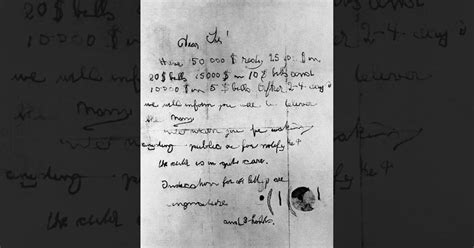 Dear Sir!
Have 50.000 $ redy 25 000 $ in
20 $ bills 15000 $ in 10 $ bills and
10000 $ in 5 $ bills After 2-4 days
we will inform you were to deliver
the Mony
We warn you for making
anyding public or for notify the
the child is in gut care.
Indication for all letters are
singnature
and 3 holds.